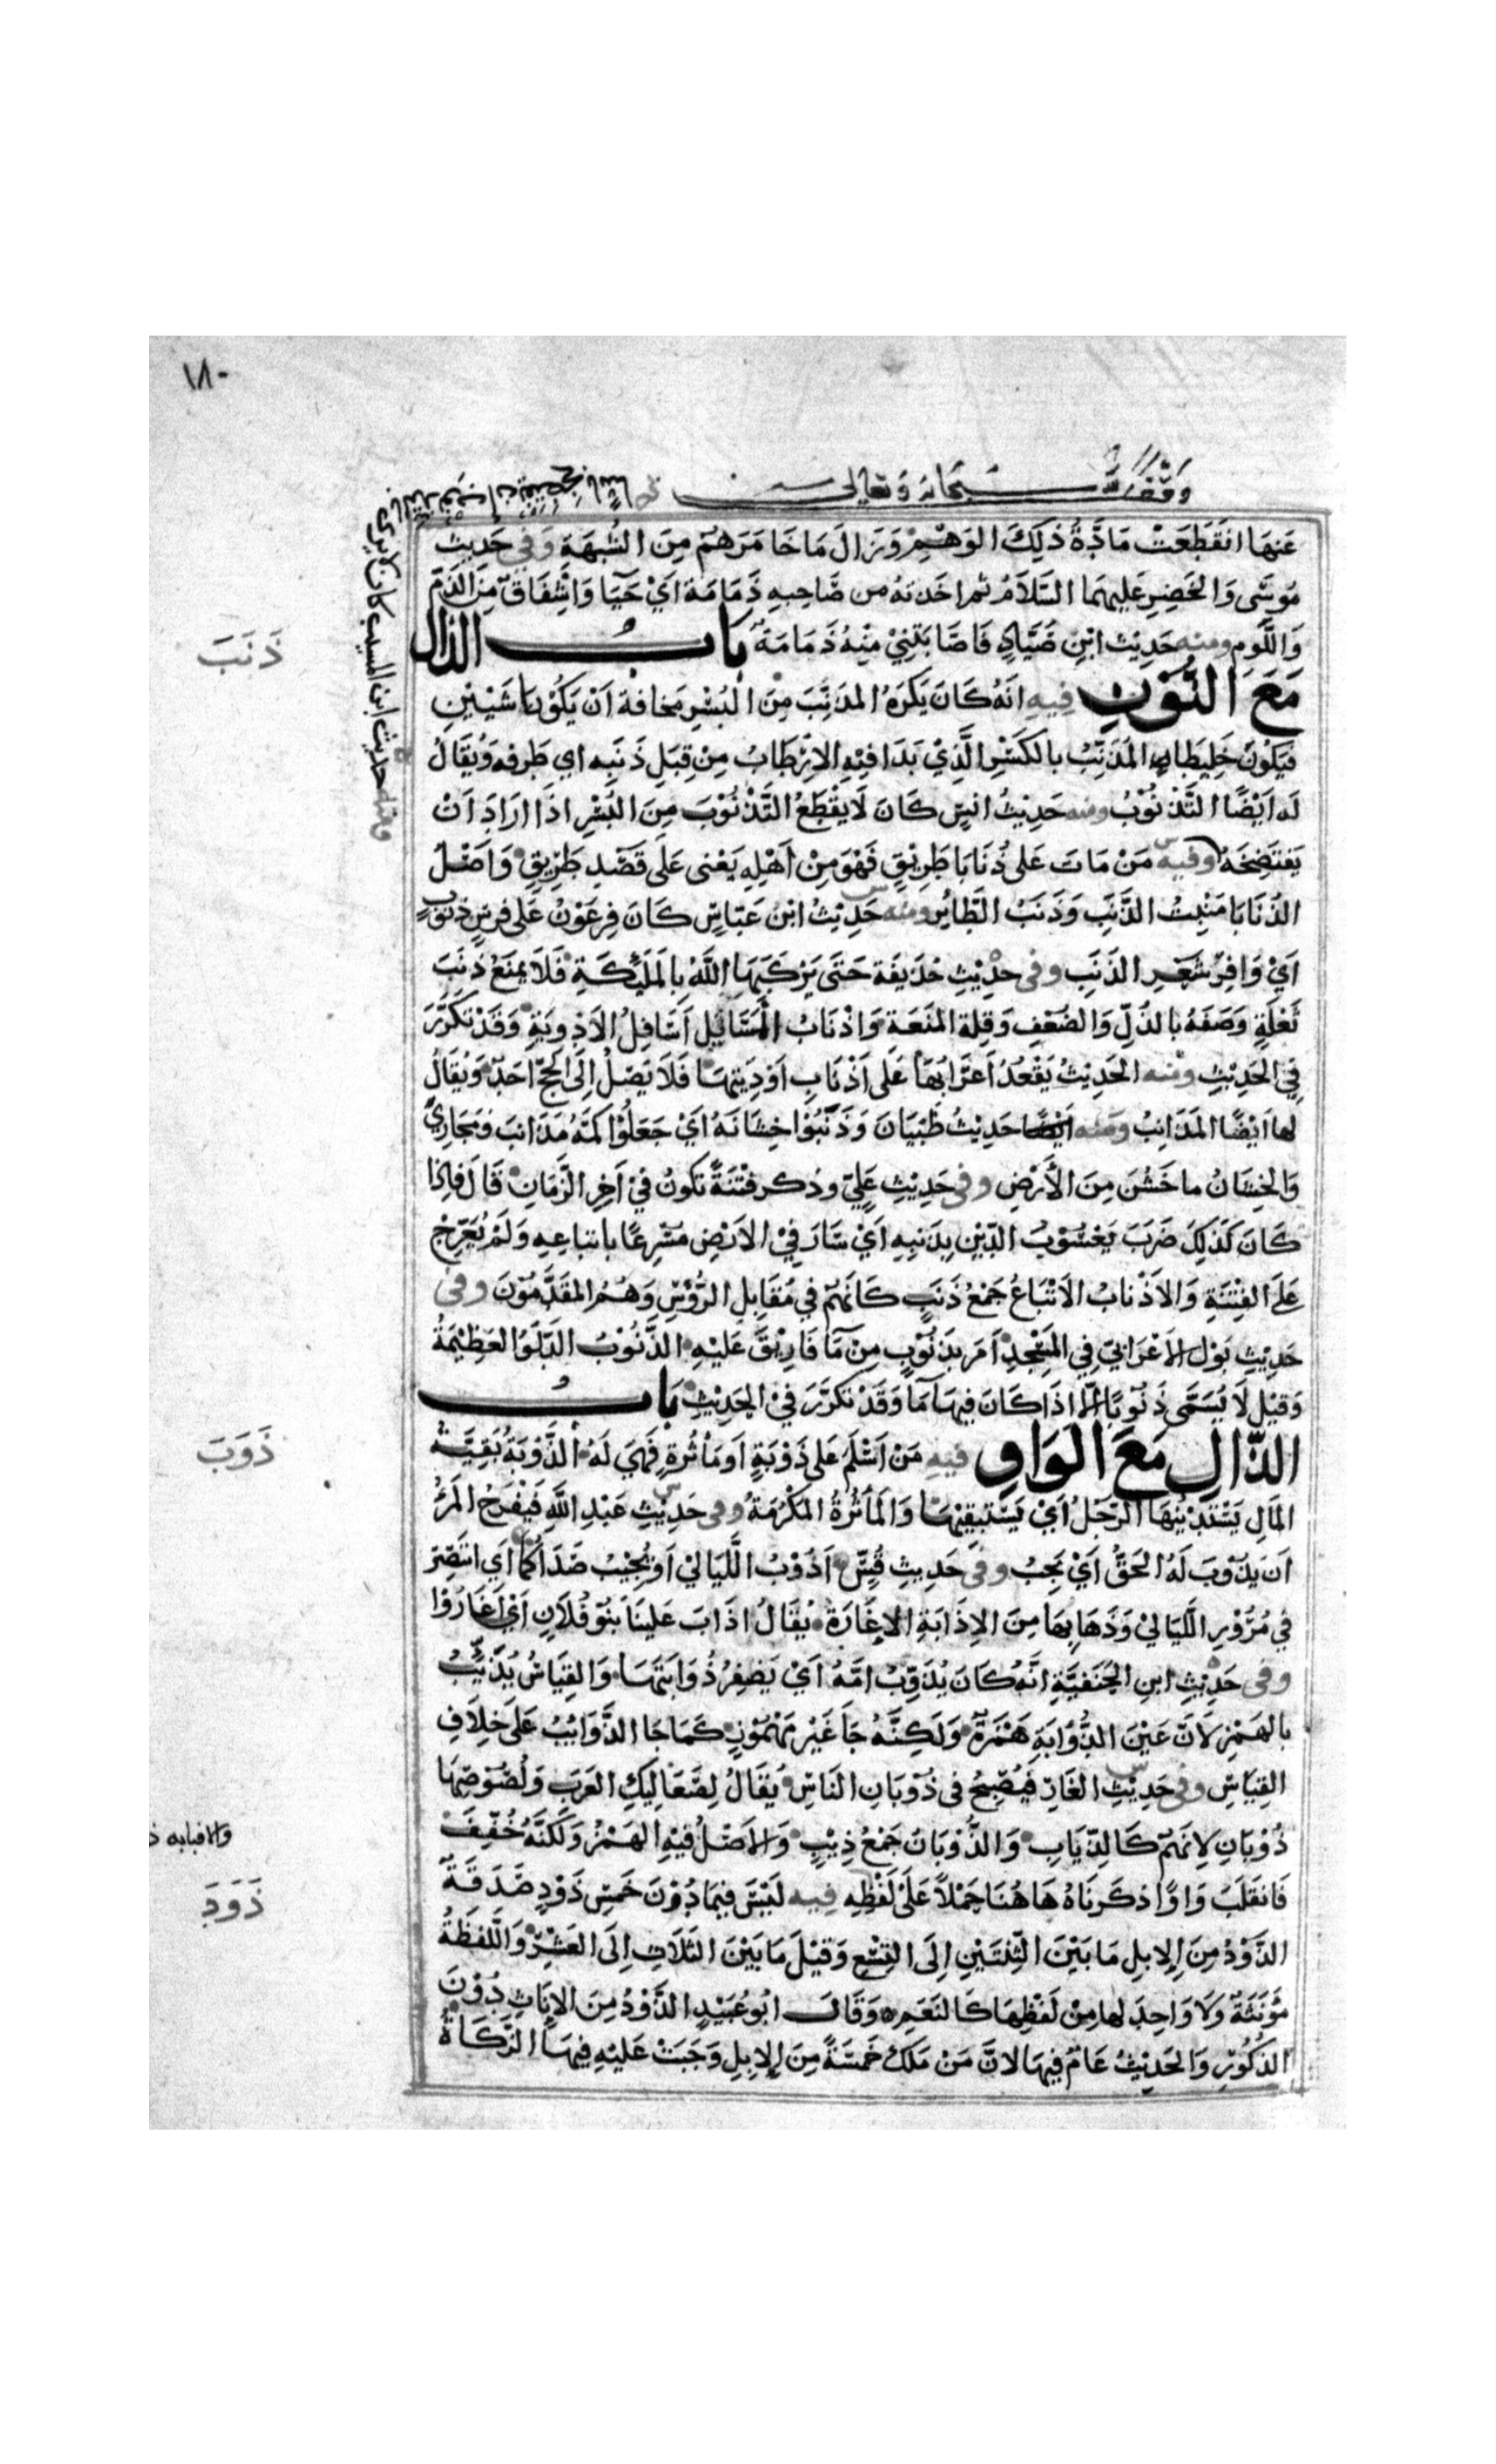 ١٨٠
وقف لله سبحانه وتعالى
عَنهَا انقَطَعَتْ مَادَّةُ ذلِكَ الوَهْمِ وَزَالَ مَاخَامَرَهُمْ مِنَ الشُّبهَةِ وَفي حَدِيثِ
مُوسَى وَالخَضِرِ عَلَيهمَا السَّلَامُ ثم اخذته من صَاحِبِهِ ذَمَامَة اَيْ حَيَا وَاشْفَاقٌ مِنَ الذَمِّ
وَاللَّوم ومنه حَدِيْث ابنِ صَيَّادٍ فَاصَابَتْنِيْ مِنْهُ ذَمَامَةٌ بَابُ الذال
مَعَ النُّوْنِ فِيهِ انَّهُ كَانَ يَكْرَهُ المذَنِّبَ مِنَ البُسْرِ مَخافة اَنْ يَكُوْنا شَيْئَينِ
فيَكُوْنَ خَلِيطَا المُذَنِّبُ بالكَسْرِ الَّذِيْ بَدَا فيْهِ الارْطَابُ مِنْ قِبَلِ ذَنَبِه اي طَرفه وَيُقَالُ
لَه اَيْضًا التَّذْنُوْبُ ومنه حَدِيْثُ انَسٍ كَانَ لَا يَقْطَعُ التَّذْنُوْبَ مِنَ البُسْرِ اذَا ارَادَ انْ
يَفتَضِخَهُ وفيه مَنْ مَاتَ عَلى ذُنَابَا طَرِيْقٍ فَهْوَ مِنْ اَهْلِهِ يَعْنى عَلَى قَصْدِ طَرِيْقٍ وَاَصْلُ
الذُنَابَا مَنْبِتُ الذَّنَبِ وَذَنَبُ الطَّائِر ومنه حَدِيْثُ ابْن عَبَّاسٍ كَانَ فِرعَوْنُ عَلى فَرسٍ ذَنُوبٍ
اَيْ وَافِرُ شَعَرِ الذَنَبِ وفى حدِيْثِ حُذَيفَة حَتى يَرْكَبَهَا اللهُ بِالمَلَئِكَةِ فَلَا يمنَعْ ذَنَبَ
تَلْعَةٍ وَصَفَهُ بالذُلِّ وَالضُعْفِ وَقِلة المَنَعَة وَاذْنَابُ المسَائِيلِ اَسَافِلُ الاَوْدِيَةِ وَقَدْ تَكَرَّرَ
فِي الحَدِيْثِ ومنه الحَدِيْثُ يَقْعُدُ اَعرَابُهَا عَلَى اَذْنَابِ اَوْدِيَتِهَا فَلَا يَصْلُ اِلَى الحَجِّ احَدٌ وَيُقَالُ
لها اَيْضًا المذَانِبُ ومنه حَدِيْثُ ظَبْيَانَ وَذَنَّبُوْا خِشَانَهُ اَيْ جَعَلُوْا لَهُ مَذَانبَ ومَجَارِيَ
وَالخِشَانُ ما خَشُنَ مِنَ الأَرْضِ وفى حَدِيْثِ عَلِيّ وذكر فتْنَةً تكونُ فيْ اَخِرِ الزَّمَانِ قَالَ فاذا
كَانَ كَذلِكَ ضَرَبَ يَعْسُوْبُ الدِّيْنِ بِذَنَبِهِ اَيْ سَارَ فيْ الاَرْضِ مُسْرِعًا باتباعِهِ وَلَمْ يُعَرِّجْ
عَلَى الفِتْنَةِ وَالاَذْنابُ الاَتْبَاعُ جَمْعُ ذَنَبٍ كَانَهُمْ في مُقَابِلِ الرُّؤُسِ وَهُمُ المقَدَّمُوْنَ وفى
حَدِيْثِ بَوْلِ الاعْرَابيّ فيِ المَسْجِدِ اَمَر بذَنُوْبٍ مِنْ مَا فَارِيْقَ عَلَيْهِ الذَّنُوْبُ الدَّلوُ العَظِيْمَةُ
وَقيْل لَا يُسَمَّى ذَنُوبًا اِلَّا اذَا كَانَ فِيهَا مَا وَقَدْ تَكَرَّرَ فيْ الحَدِيْثِ بَابُ
الذَّالِ مَعَ الوَاوِ فيهِ مَنْ اَسْلَمَ عَلى ذَوْبَةٍ اَو مَاْثُرةٍ فَهِيَ لَهُ الذَّوْبَةُ بَقِيَّةُ
المَالِ يَسْتَذِيْبُهَا الرَّجُلُ اَيْ يَسْتَبقِيْهَا وَالمَأثُرَةُ المَكْرُمَةُ وفى حَدِيْثِ عَبْدِ اللهِ فَيَفْرَحُ المَرْءُ
اَن يَذُوْبَ لَهُ الحَقُّ اَيْ يَجِبُ وفى حَدِيثِ قُسٍّ اَذُوْبُ اللَّيَالِيْ اَوْ يُجِيْبُ صَدَاكُمَا اَي انتَظِرُ
فِي مُرُوْرِ اللَّيَالِيْ وَذَهَابِهَا مِنَ الاِذَابَةِ الاِغَارَةِ يُقَالُ اذَابَ عَلَينَا بَنُوْ فُلَانٍ اَيْ اَغَارُوْا
وفى حَدِيْثِ ابنِ الحَنَفيَّةِ انَّهُ كَانَ يُذَوِّبُ امَّهُ اَيْ يَضفِرُ ذُوَابَتَهَا وَالقِيَاسُ يُذَئِّبُ
بالهَمْزِ لَانَّ عَيْنَ الذُّوَابَةِ هَمْزَةٌ وَلَكِنَّهُ جَا غَيْرَ مَهْمُوْزٍ كَمَا جَا الذَّوَائِبُ عَلَى خِلَافِ
القِيَاسِ وفى حَدِيْثِ الغَارِ فَيُصْبِحُ فى ذُوْبَانِ النَاسِ يُقَالُ لِصَعَالِيكِ العَرَبِ وَلُصُوْصِهَا
ذُوْبَانٌ لاِنَهُمْ كَالذِيَابِ وَالذُّوْبَانُ جَمْعُ ذِيْبٍ وَالاَصْلُ فيْهِ الهَمْزُ وَلَكنَّهُ خُفِّفَ
فَانقَلَبَ وَاوًا ذكَرنَاهُ هَاهُنَا حَمْلاً عَلَى لَفْظِهِ فيه لَيْسَ فيمَا دُوْنَ خَمسِ ذَوْدٍ صَدَقَةٌ
الذَّوْدُ مِنَ الاِبِلِ مَا بَيْنَ الثِّنتَيْنِ اِلَى التِّسْعِ وَقيْلَ مَا بَيْنَ الثلَاثِ اِلَى العَشْرِ وَاللَّفظَةُ
مُؤنَثَةٌ وَلَا وَاحِدَ لها مِنْ لَفْظِهَا كَالنَعَمِ وَقَالَ ابُوعُبَيْدٍ الذَّوْدُ مِنَ الاِنَاثِ دُوْنَ
الذكُوْرِ وَالحَدِيْثُ عَامٌ فِيهَا لانَّ مَنْ مَلَكَ خَمسَةً مِنَ الاِبِلِ وَجَبَتْ عَلَيْهِ فِيهَا الزَّكَاةُ
ذَنَبَ
ذَوَبَ
ذَوَدَ
ومنه حديث ابن المسيب كان لا يرى